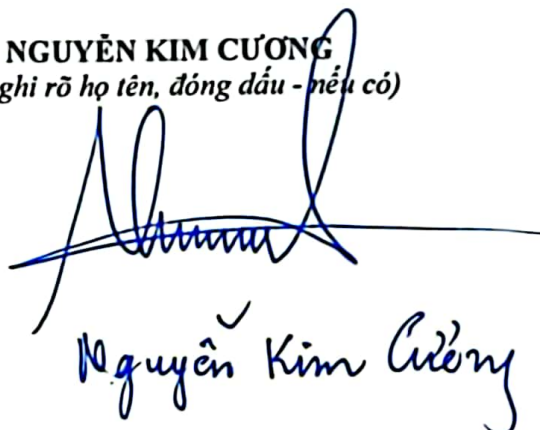 NGUYỄN KIM CƯƠNG
ghi rõ họ tên, đóng dấu - nếu có)
Nguyễn Kim Cương